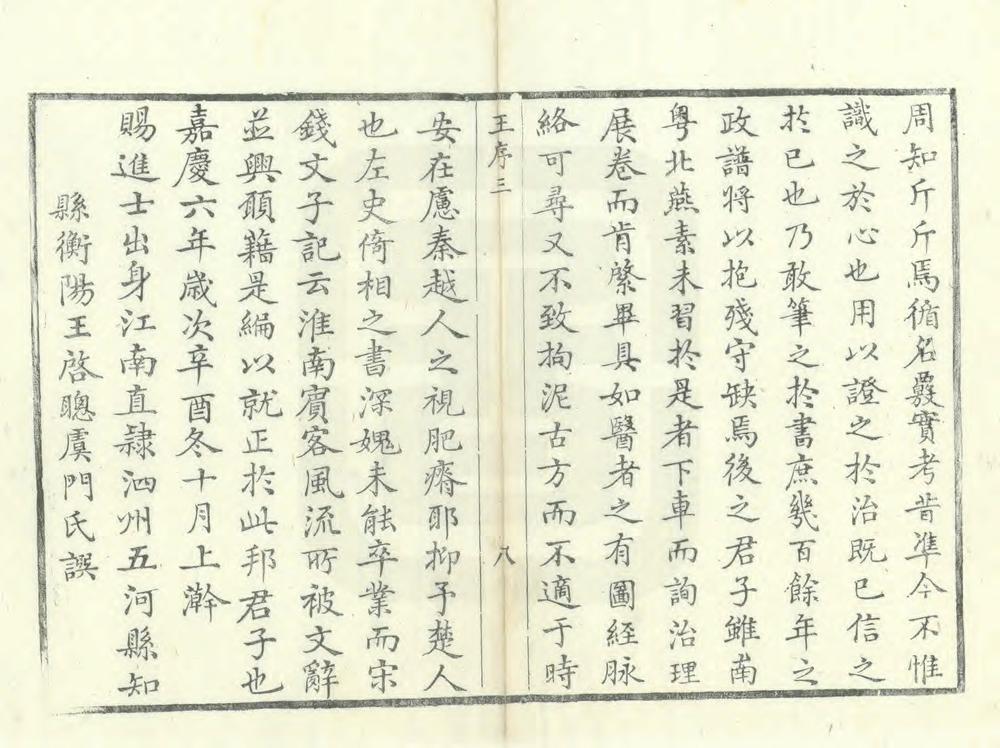 周知斤斤焉循名覈實考昔準今不惟
識之於心也用以證之於治旣已信之
於已也乃敢筆之於書庶幾百餘年之
政譜將以抱殘守缺焉後之君子雖南
粤北燕素未習於是者下車而詢治理
展卷而肯綮畢具如醫者之有圖經脉
絡可尋又不致拘泥古方而不適于時
王序三
八
安在慮秦越人之視肥瘠耶抑予楚人
也左史倚相之書深媿未能卒業而宋
錢文子記云淮南賓客風流所被文辭
並興願藉是編以就正於此邦君子也
嘉慶六年歲次辛酉冬十月上澣
賜進士出身江南直隸泗州五河縣知
縣衡陽王啓聰虞門氏譔